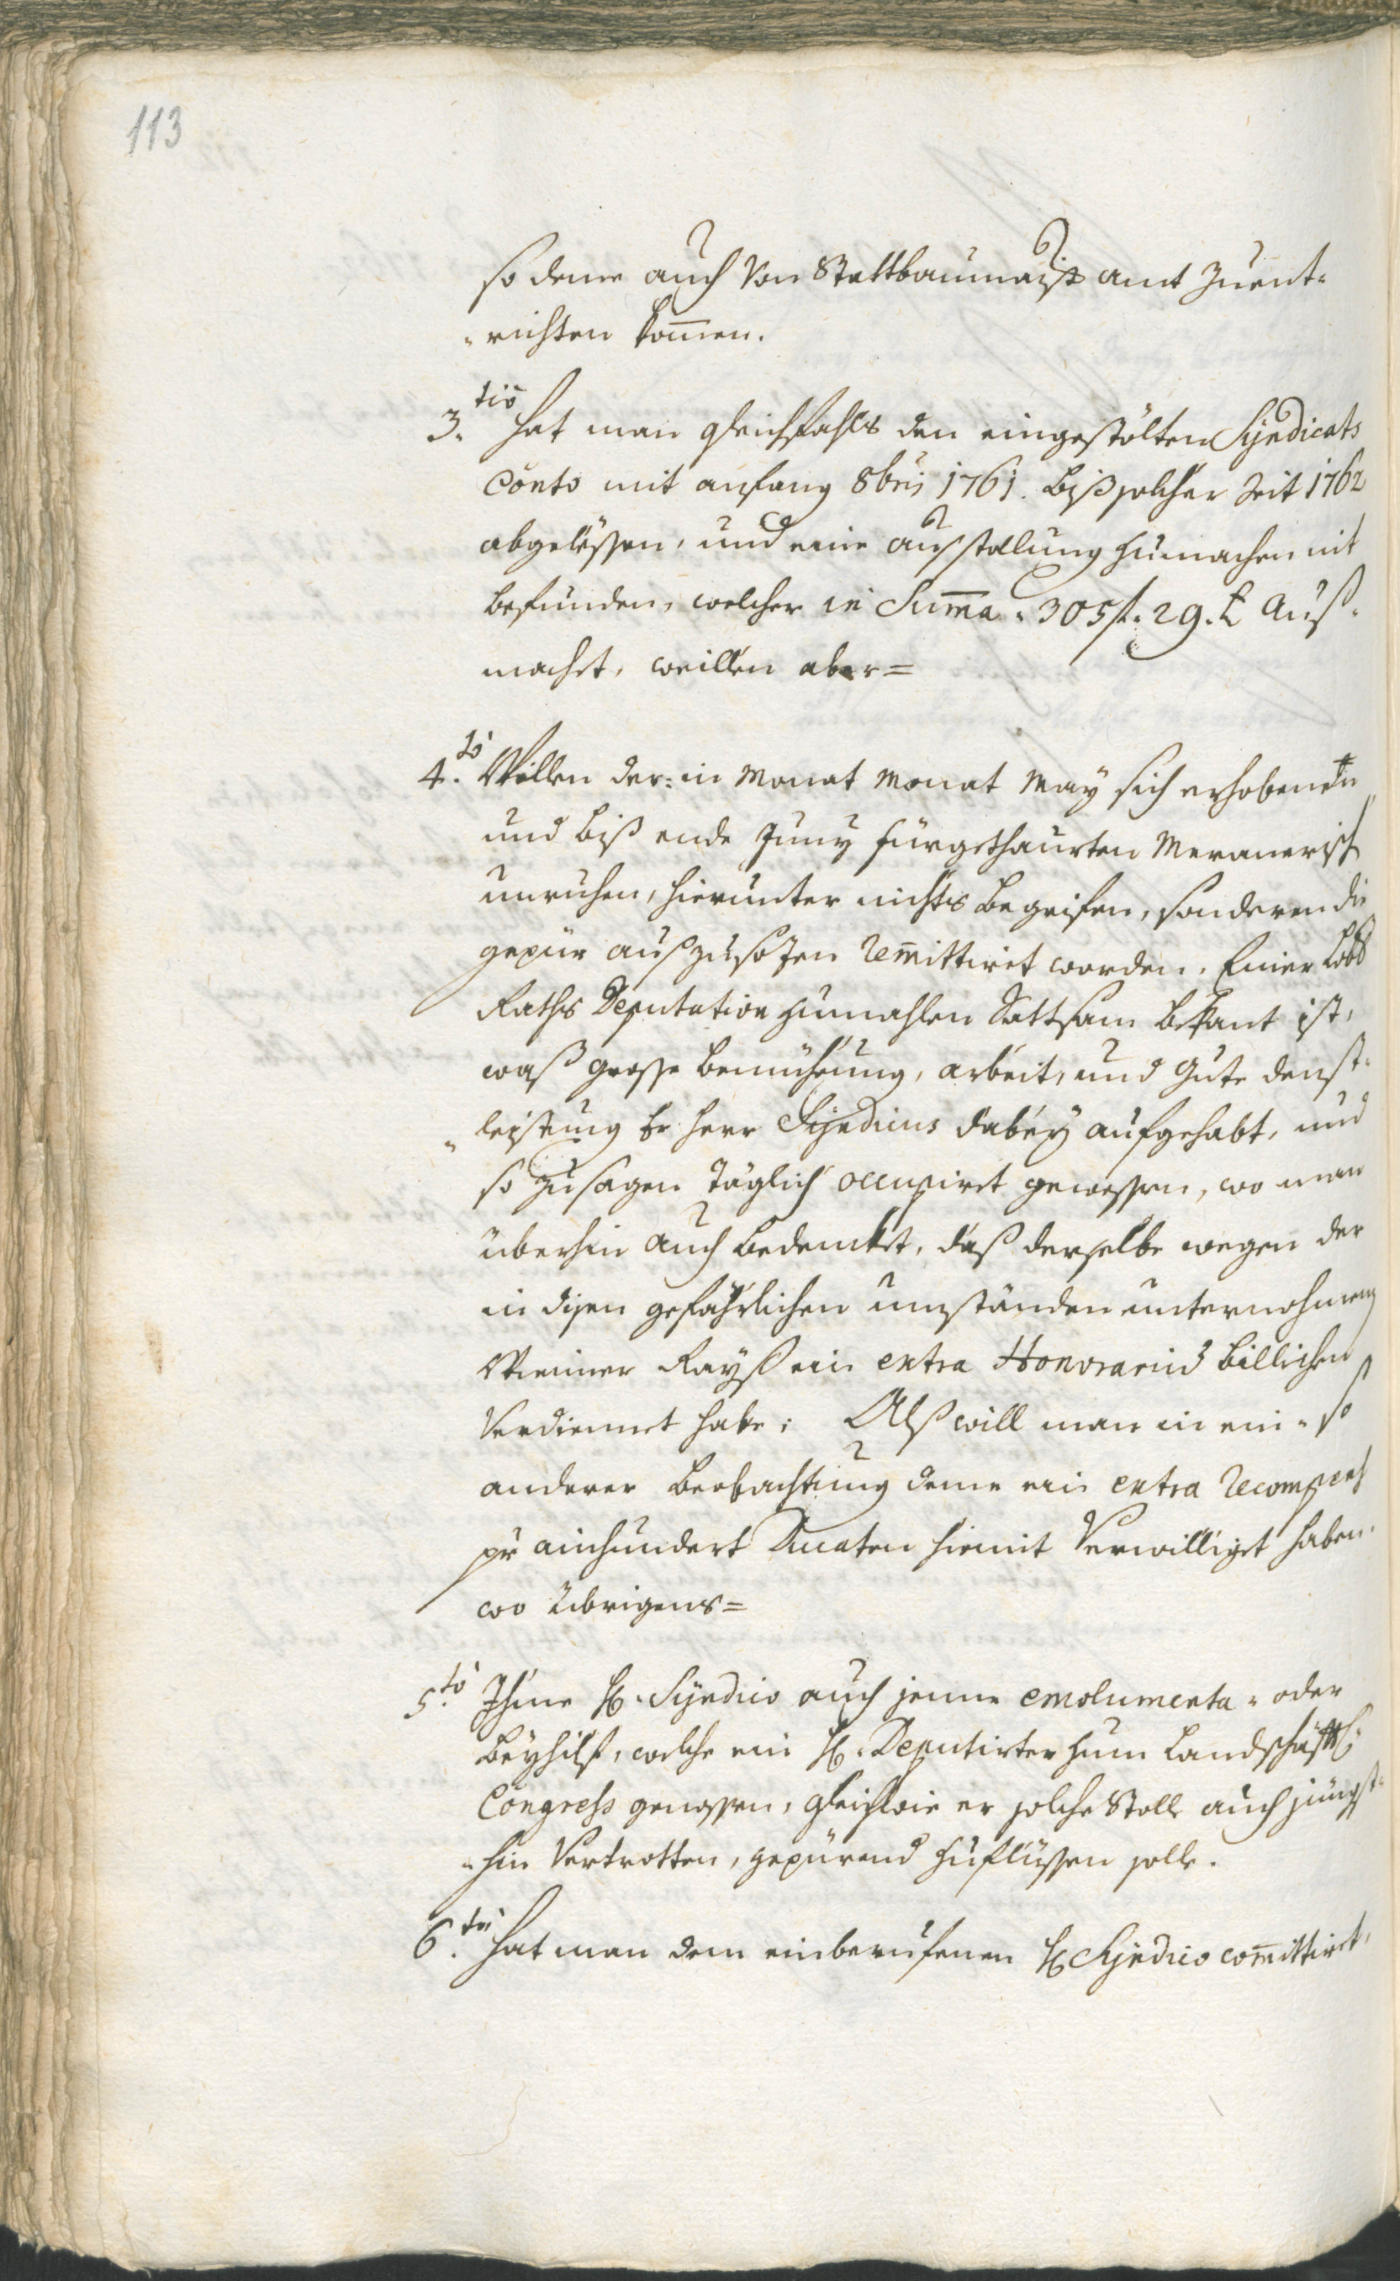 113
so denne auch von Stattbaumaist amt zuent-
-richten komen.
3.tio hat man gleichfahls den eingestölten Syndicats
Conto mit anfang 8bris 1761. biß solcher Zeit 1762
abgelössen, und eine ausstellung zumachen nit
befunden, welcher in Suma. 305 f. 29. k auß-
machet, weillen aber=
4.to Willen der: in Monat Monat May sich erhobenen
und biß ende Juny fürgethaurten Meranerisch
unruhen, hierunter nichts begrifen, sonderen die
gepür auszusezen remittiret worden. Einer Lobl
Raths Deputation zumahlen Sattsam bekant ist,
waß grosse bemühung, arbeit, und gute denst-
-leistung Er herr Syndicus dabey aufgehabt, und
so zusagen täglich occupiret gewessen, wo man
überhin auch bedenckt, daß derselbe wegen der
in disen gefährlichen umständen unternohmen
Wienner Rayß ein extra Honorarium billichen
verdiennet habe; Alß will man in ein- so
anderer beobachtung deme ein extra recompens
pr ainhundert Ducaten hiemit verwilliget haben.
wo übrigens=
5.to Ihme H. Syndico auch jenne emolumenta- oder
beyhilf, welche ein H. Deputirter zum Landschäftl:
Congress genossen, gleichwie er solche Stoll auch jüngst-
-hin vertrotten, gepürend zuflüssen solle.
6.to hat man dem einberufenen H Syndico comittiret,